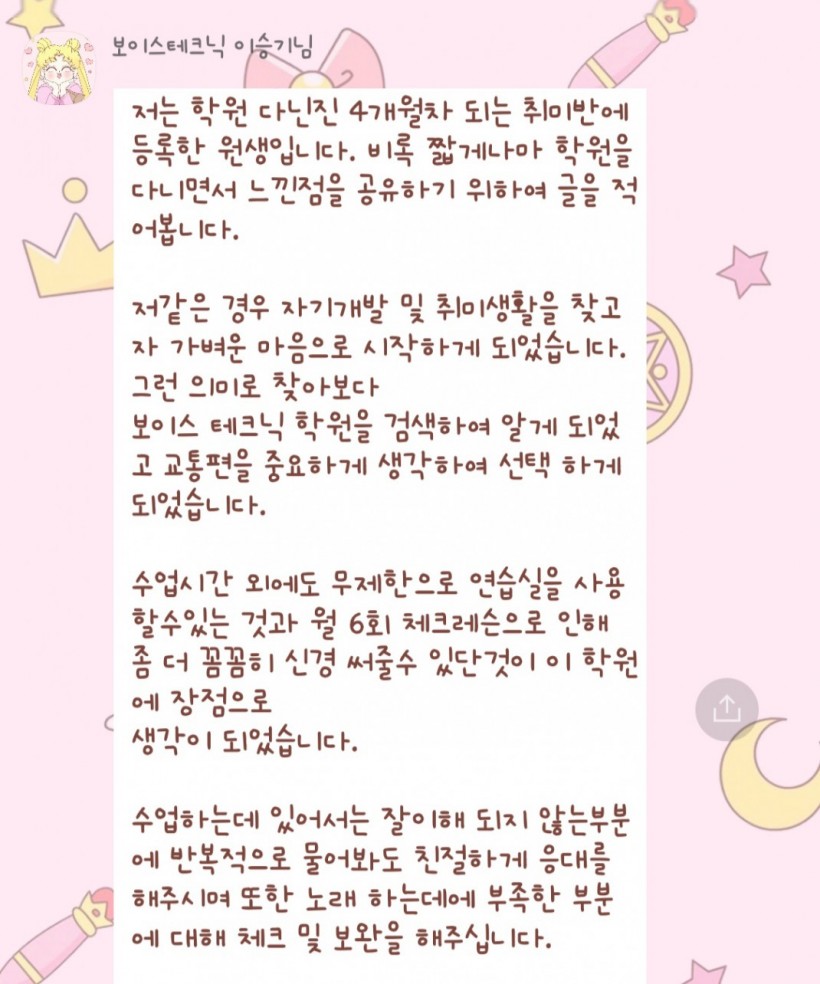 보이스테크닉 이승기님
저는 학원 다닌진 4개월차 되는 취미반에
등록한 원생입니다. 비록 짧게나마 학원을
다니면서 느낀점을 공유하기 위하여 글을 적
어봅니다.
저같은 경우 자기개발 및 취미생활을 찾고
자 가벼운 마음으로 시작하게 되었습니다.
그런 의미로 찾아보다
보이스 테크닉 학원을 검색하여 알게 되었
고 교통편을 중요하게 생각하여 선택 하게
되었습니다.
수업시간 외에도 무제한으로 연습실을 사용
할수있는 것과 월 6회 체크레슨으로 인해
좀 더 꼼꼼히 신경 써줄수 있단것이 이 학원
에 장점으로
생각이 되었습니다.
수업하는데 있어서는 잘이해 되지 않는부분
에 반복적으로 물어봐도 친절하게 응대를
해주시며 또한 노래 하는데에 부족한 부분
에 대해 체크 및 보완을 해주십니다.